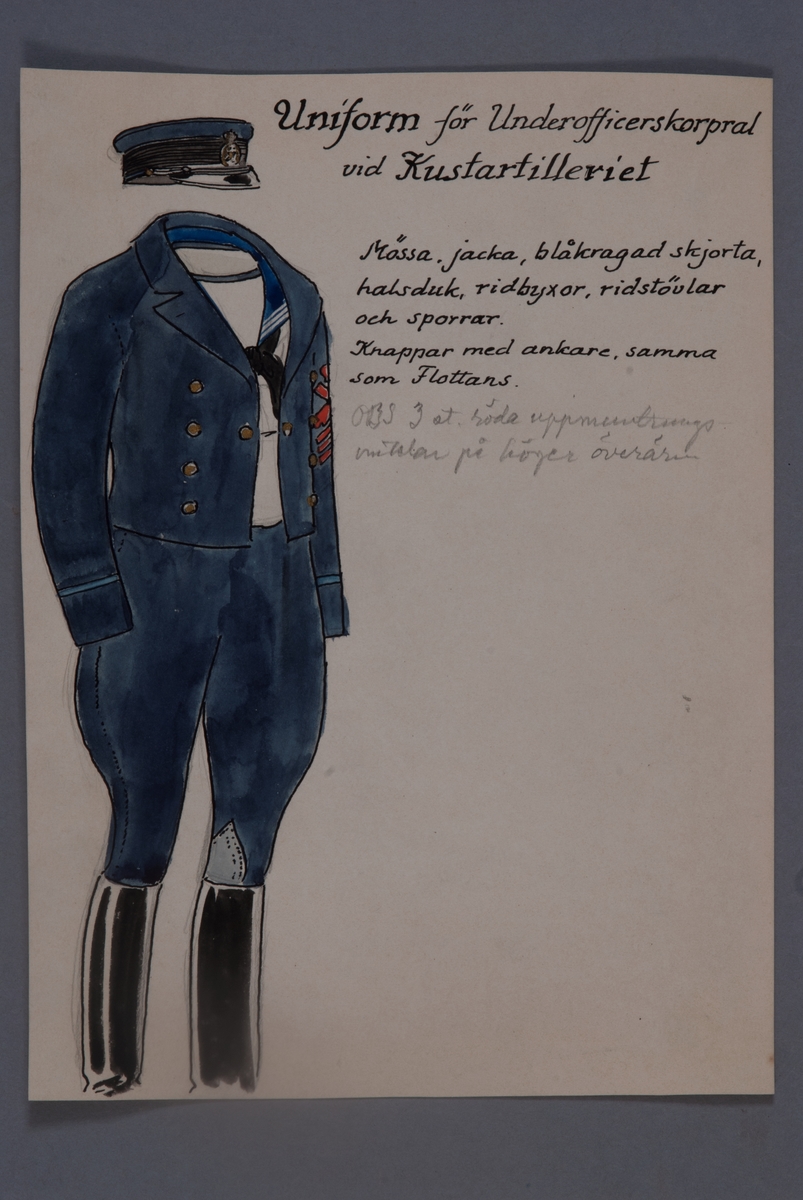 Uniform för Underofficerskorpral
vid Kustartilleriet
Mössa, jacka, blåkragad skjorta,
halsduk, ridbyxor, ridstövlar
och sporrar.
Knappar med ankare, samma
som Flottans.
OBS 3 st. röda uppmuntrings-
vinklar på höger överärm